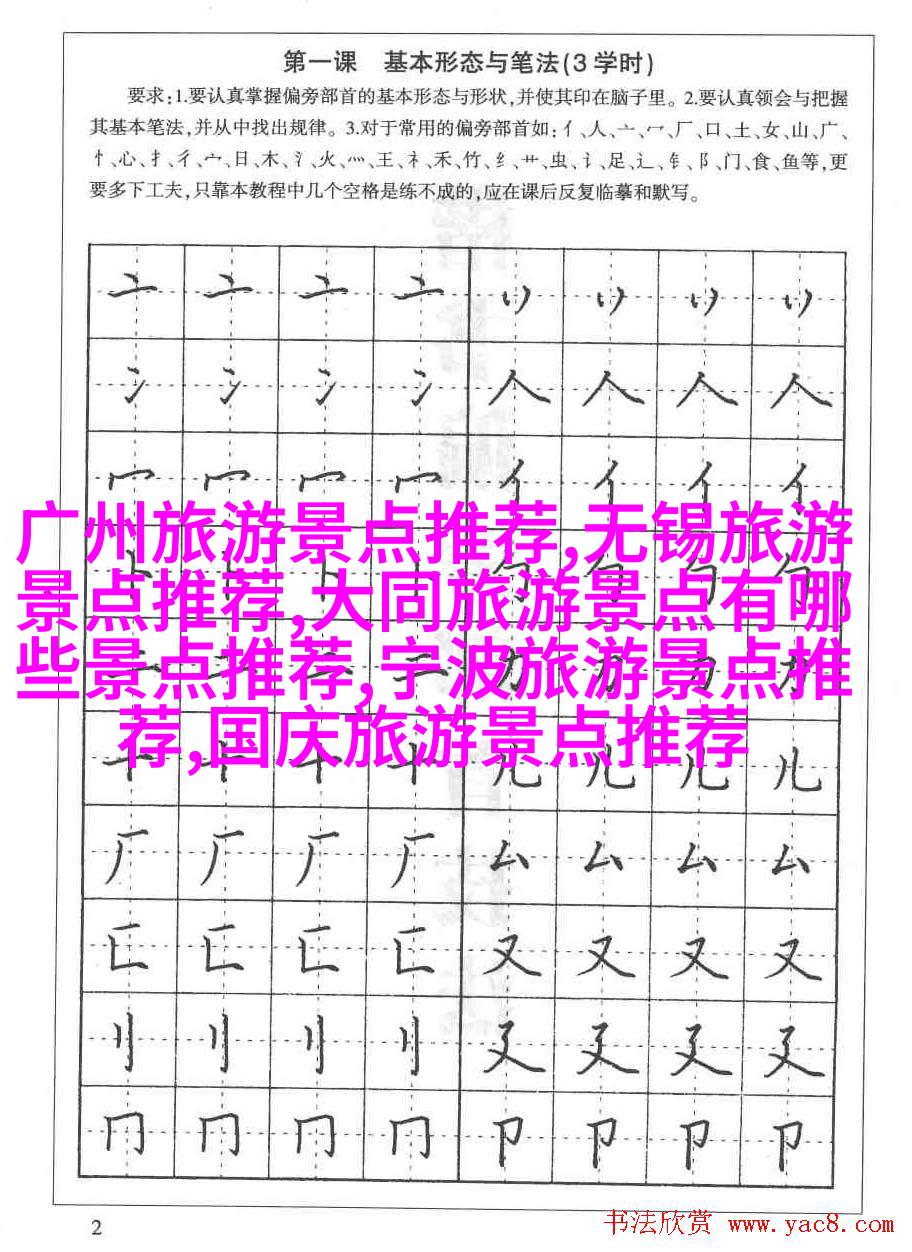 第一课 基本形态与笔法(3学时)
要求:1.要认真掌握偏旁部首的基本形态与形状,并使其印在脑子里。2.要认真领会与把握
其基本笔法,并从中找出规律。3.对于常用的偏旁部首如:亻、人、亠、冖、厂、口、土、女、山、广、
忄、心、扌、彳、宀、日、木、氵、火、灬、王、礻、禾、竹、纟、艹、虫、讠、足、辶、钅、阝、门、食、鱼等,更
要多下工夫,只靠本教程中几个空格是练不成的,应在课后反复临摹和默写。
亠 亠 亠 亠 丷 丷 丷 丷
冫 冫 冫 冫 人 人 人 人
冖 冖 冖 冖 亻 亻 亻 亻
广州旅游景点推荐,无锡旅游
景点推荐,大同旅游景点有哪
些景点推荐,宁波旅游景点推
荐,国庆旅游景点推荐
十 十 十 十 儿 儿 儿 儿
厂 厂 厂 厂 厶 厶 厶 厶
匚 匚 匚 匚 又 又 又 又
刂 刂 刂 刂 廴 廴 廴 廴
冂 冂 冂 冂 卩 卩 卩 卩
2
书法欣赏 www.yac8.com